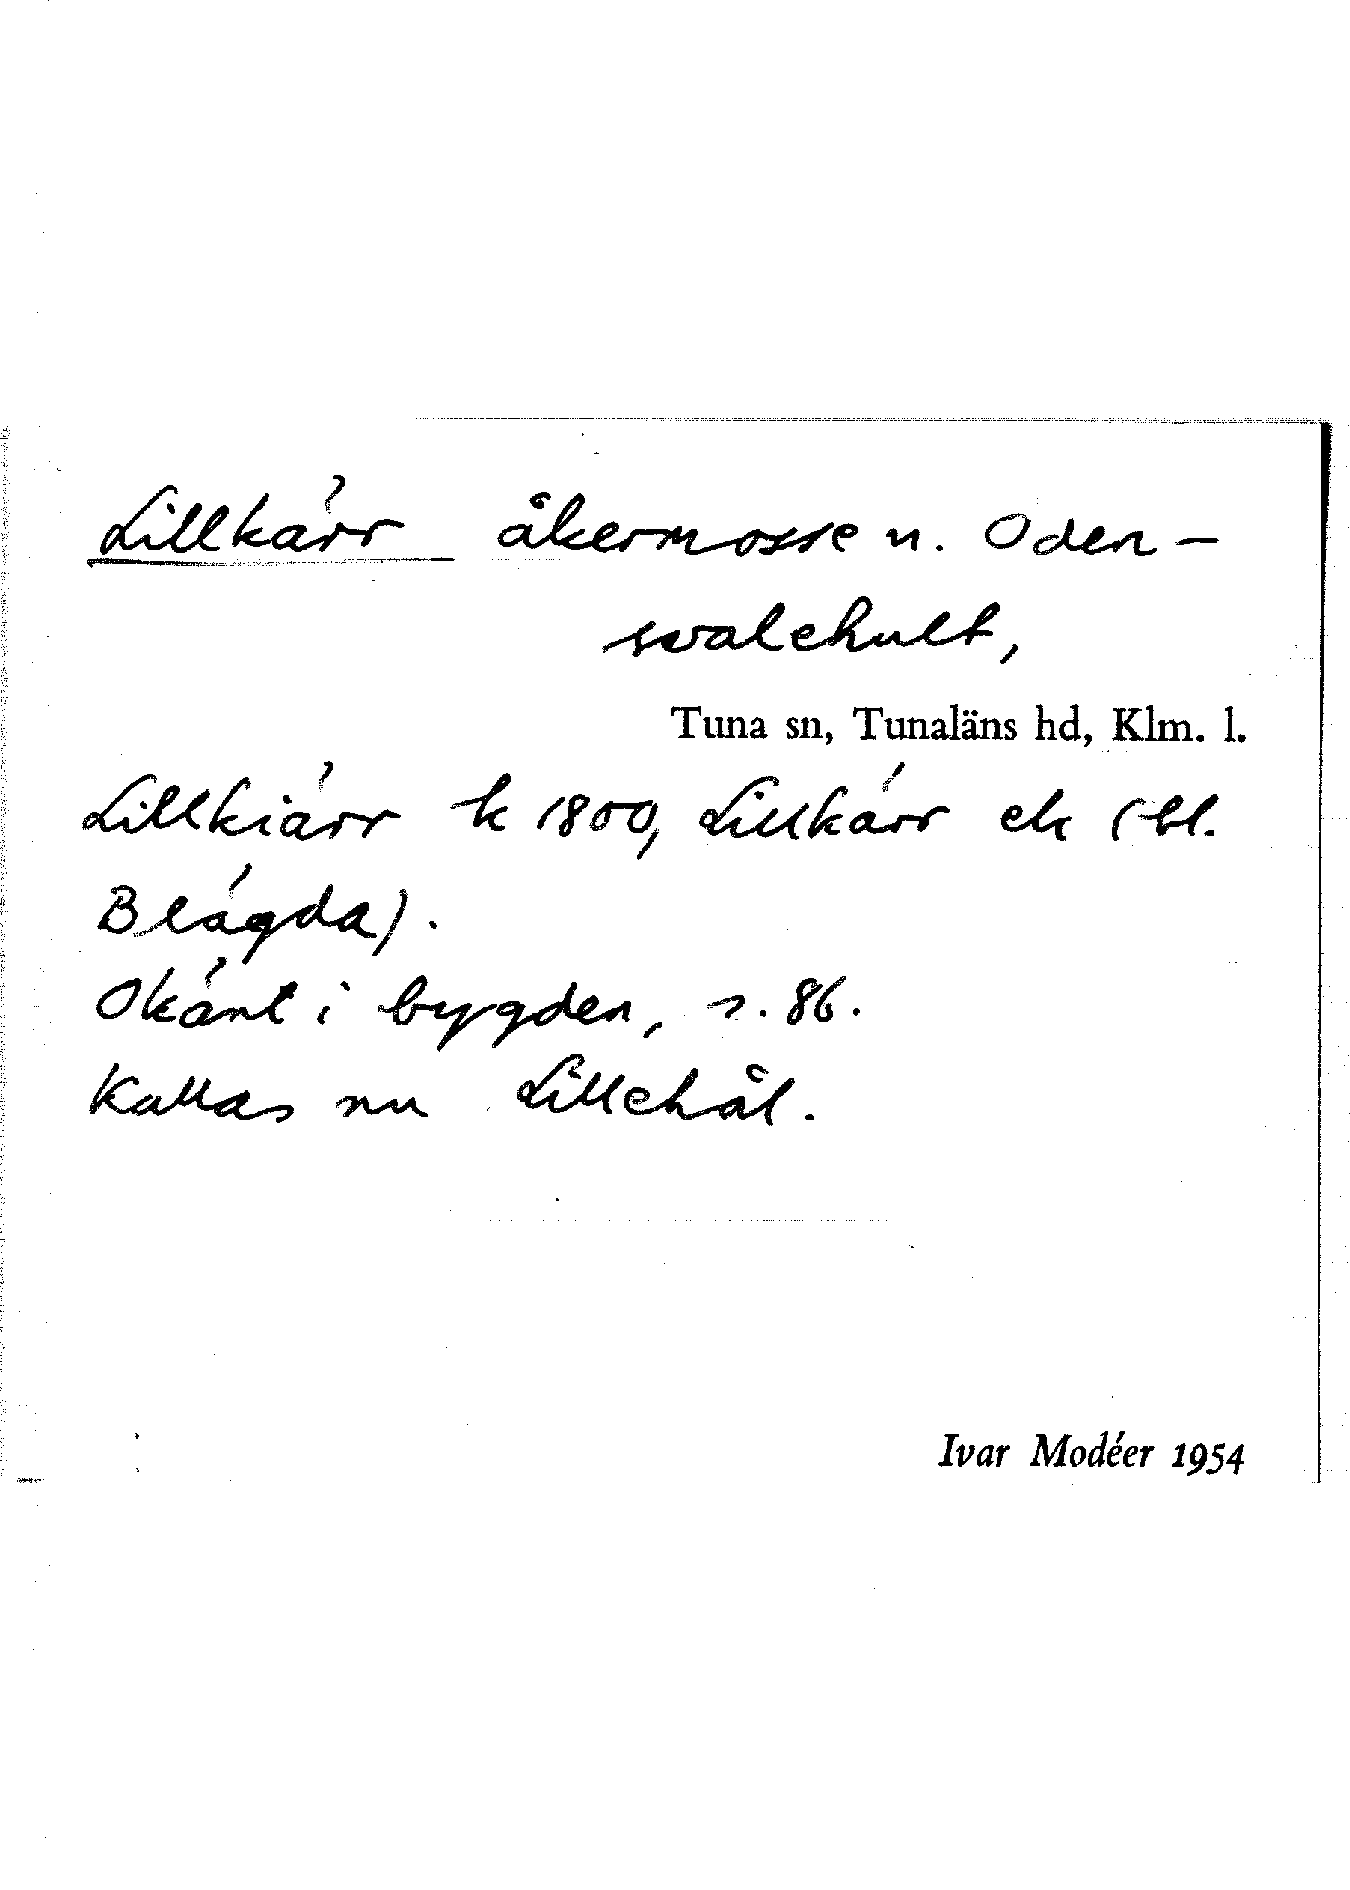 Lillkärr åkermosse n. Oden-
svalehult,
Tuna sn, Tunaläns hd, Klm. l.
Lillkiärr k 1800, Lillkärr ek (bl.
Blägda).
Okänt i bygden, s. 86.
Kallas nu Lillehål.
Ivar Modéer 1954